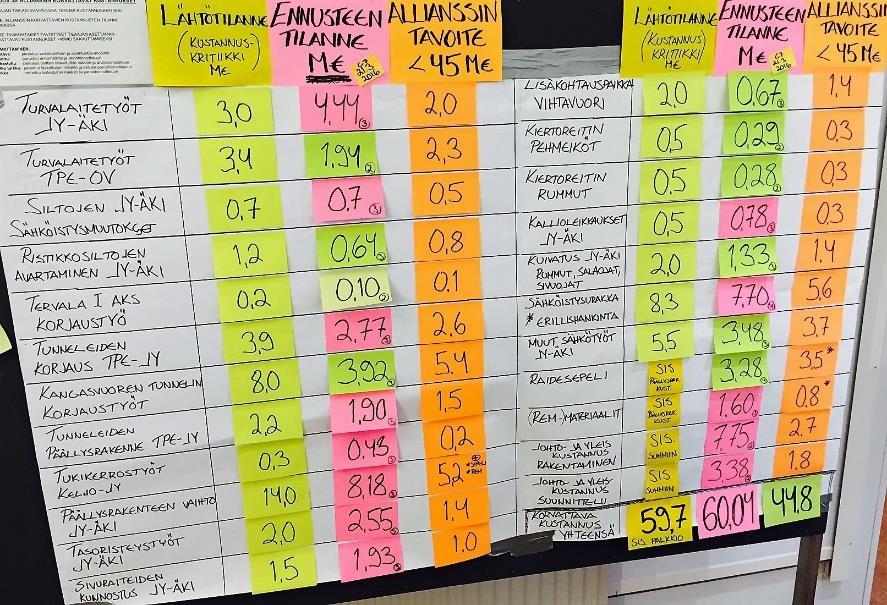 LÄHTÖTILANNE
(KUSTANNUS-
KRITIIKKI)
M€
ENNUSTEEN
TILANNE
M€
2016
ALLIANSSIN
TAVOITE
<45M€
TURVALAITETYÖT
JY-ÄKI
3,0
4,44
2,0
TURVALAITETYÖT
TPE-OV
3,4
1,94
2,3
SILTOJEN JY-ÄKI
SÄHKÖISTYSMUUTOKSET
0,7
0,7
0,5
RISTIKKOSILTOJEN
AVARTAMINEN JY-ÄKI
1,2
0,64
0,8
TERVALA I AKS
KORJAUSTYÖ
0,2
0,10
0,1
TUNNELEIDEN
KORJAUS TPE-JY
3,9
2,77
2,6
KANGASVUOREN TUNNELIN
KORJAUSTYÖT
8,0
3,92
5,4
TUNNELEIDEN
PÄÄLLYSRAKENNE TPE-JY
2,2
1,90
1,5
TUKIKERROSTYÖT
KELJO-JY
0,3
0,43
0,2
PÄÄLLYSRAKENTEEN VAIHTO
JY-ÄKI
14,0
8,18
5,2
TASORISTEYSTYÖT
JY-ÄKI
2,0
2,55
1,4
SIVURAITEIDEN
KUNNOSTUS JY-ÄKI
1,5
1,93
1,0
LÄHTÖTILANNE
(KUSTANNUS-
KRITIIKKI)
M€
ENNUSTEEN
TILANNE
M€
2016
ALLIANSSIN
TAVOITE
<45M€
LISÄKOHTAUSPAIKKA
VIHTAVUORI
2,0
0,67
1,4
KIERTOREITIN
PEHMEIKÖT
0,5
0,29
0,3
KIERTOREITIN
RUMMUT
0,5
0,28
0,3
KALLIOLEIKKAUKSET
JY-ÄKI
0,5
0,78
0,3
KUIVATUS JY-ÄKI
RUMMUT, SALAOJAT,
SIVUOJAT
2,0
1,33
1,4
SÄHKÖISTYSURAKKA
* ERILLISHANKINTA
8,3
7,70
5,6
MUUT SÄHKÖTYÖT
JY-ÄKI
5,5
3,48
3,7
RAIDESEPELI
SIS
PÄÄLLYSRAK
KUST.
3,28
3,5*
(REM-)MATERIAALIT
SIS
PÄÄLLYSRAK
KUST.
1,60
0,8*
JOHTO- JA YLEIS
KUSTANNUS
RAKENTAMINEN
SIS.
SUMMIIN
7,75
2,7
JOHTO- JA YLEIS-
KUSTANNUS
SUUNNITTELU
SIS
SUMMIIN
3,38
1,8
KORVATTAVA
KUSTANNUS
YHTEENSÄ
59,7
SIS. PALKKIO
60,04
44,8